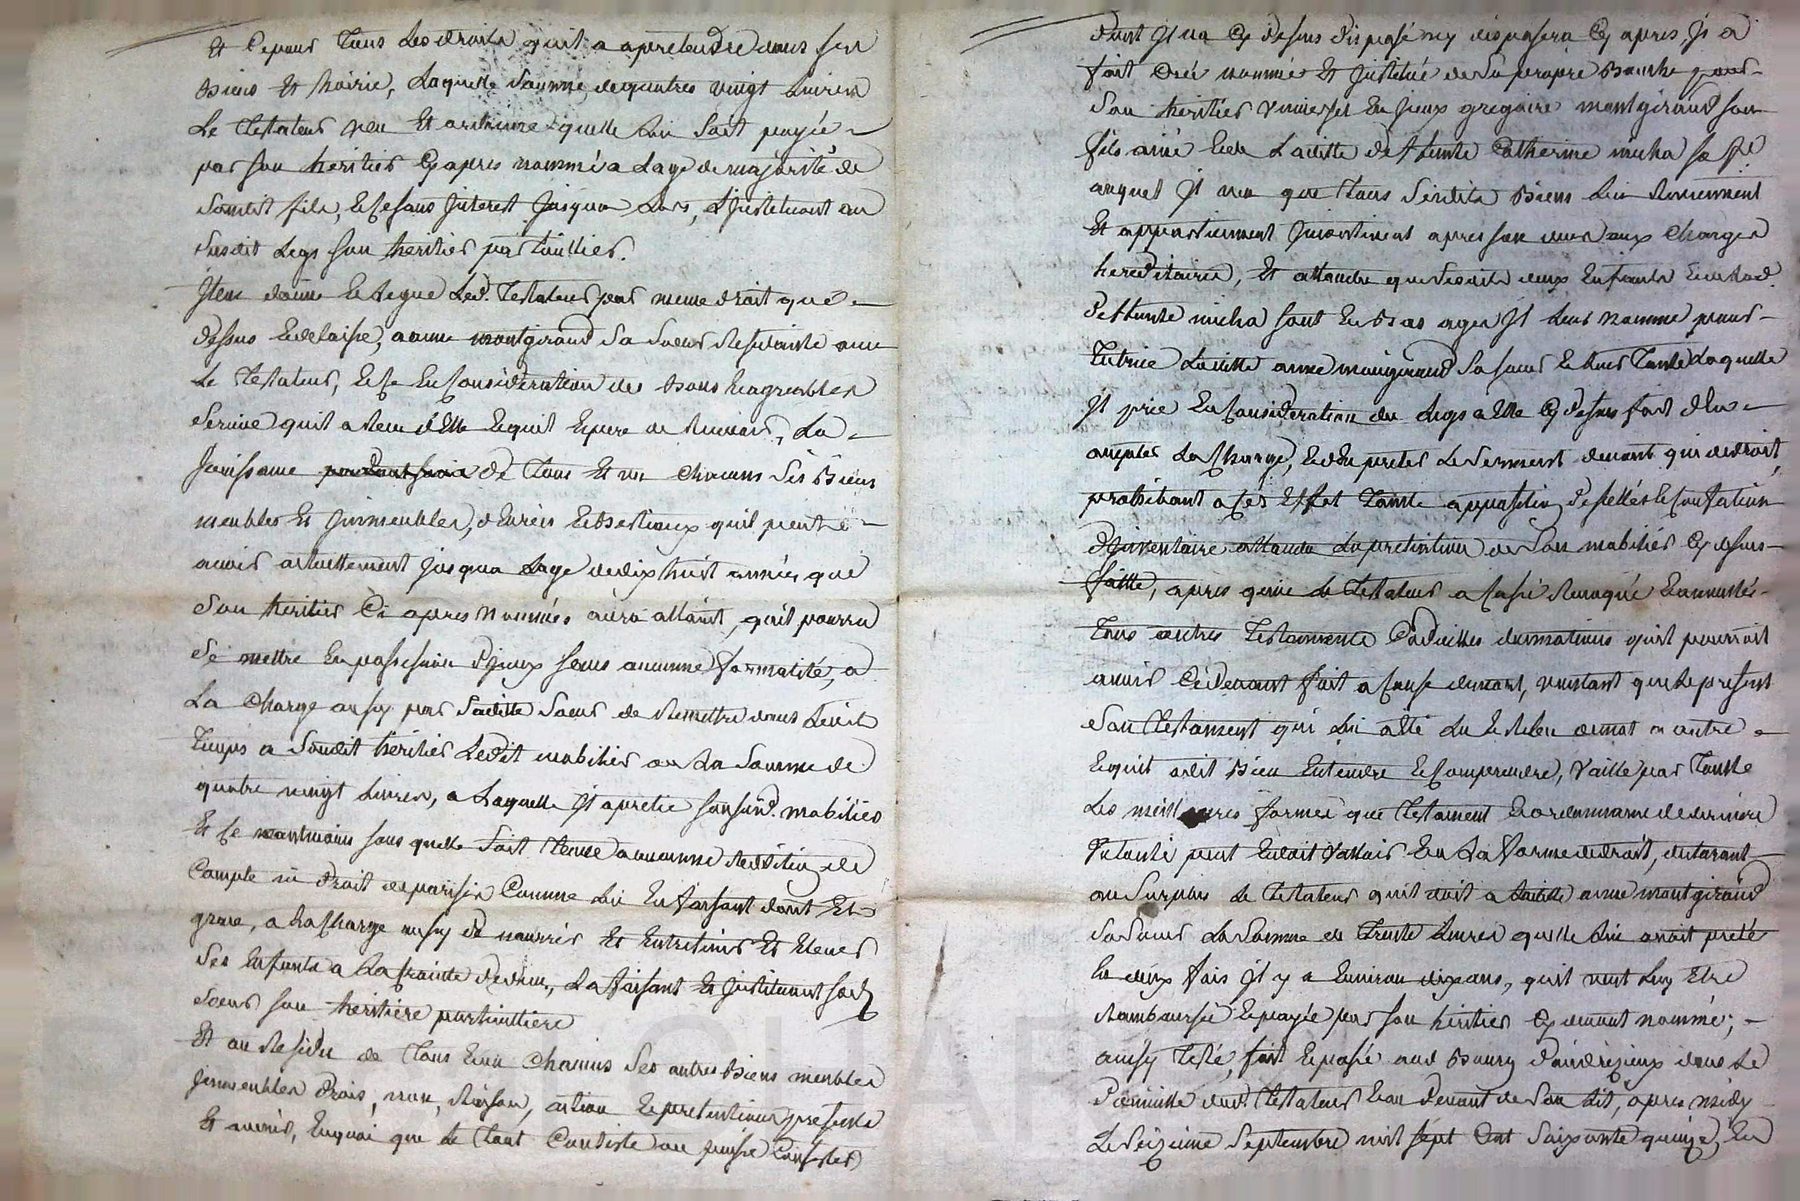 Et Ce pour Tous Les droits quil a a pretendre dans ses
Biens et hoirie, Laquelle Somme de quatres vingt Livres
Le Testateur veu Et ordonne quelle Lui Soit payée
par son heritier Cy apres nommé a Lage de majorité de
Soudit fils, Et Ce sans Jnterest Jusqua Lors, L'Jnstituant au
Susdit Legs son heritier particullier.
Jtem donne Et legue Led. Testateur par meme droit que
dessus Et delaisse, a anne montgiraud Sa Soeur Residante avec
Le Testateur, Et Ce En Consideration des Bons Et agreables
Service quil a Receu d'Elle Et quil Espere en Recevoir, La
Jouissance de Tous Et un Chacuns Ses Biens
meubles Et Jmmeubles, denrées Et Bestiaux quil peut
avoir actuellement Jusqua Lage de dix huit années que
Son heritier Ci apres Nommés aura attaint, quil pourra
Se mettre En possession D'Jceux sans aucunne formalité, a
La Charge aussy par Saditte Soeur de Remettre dans Ledit
Temps a Soudit heritier Ledit mobilier ou La Somme de
quatre vingt Livres, a Laquelle Jl apretie sond. mobilier
Et Ce sans quelle Soit Tenue a aucunne Reddition de
Compte ni Droit de parisis Comme Lui En faisant dont Et
grace, a La Charge aussy de nourrir Et Entretenir Et Elever
Ses Enfants a La Crainte de dieu, La faisant Et Jnstituant sad.
Soeur son heritiere particulliere
Et au Residu de Tous Et un Chacuns Ses autres Biens meubles
Jmmeubles Drois, nom, Raison, action Et pretentions presents
Et avenir, En quoi que Le Tout Consiste ou puisse Consister
dont Jl na Cy dessus disposé ny disposera Cy apres Jl a
fait Créé nommé Et Jnstitué de Sa propre Bouche pour
Son heritier Universel En Jceux gregoire montgiraud son
fils ainé Et de Laditte Deffunte Catherine micha sa
auquel Jl veu que Tous Sesdits Biens Lui Reviennent
Et appartiennent Jncontinent apres son deces aux Charges
hereditaires, Et attandu que Sesdits deux Enfants Et de lad.
Deffunte micha sont En Bas ages Jl Leur Nomme pour
Tutrice Laditte anne montgiraud Sa soeur Et Leur Tante Laquelle
Jl prie En Consideration du Legs a Elle Cy dessus fait d'En
accepter La Charge, Et d'En preter Le Serment devant qui de droit,
prohibant a Cet Effet Toutte apposition de sellés Et Confation
D'Jnventaire attandu La pretiation de Son mobilier Cy dessus
faitte, apres quoi Le Testateur a Cassé Revoqué Et annullé
Tous autres Testaments Codicilles donnations quil pourroit
avoir Ci devant fait a Cause de mort, voulant que Le present
Son Testament qui Lui a été Lu Et Relu de mot a autre
Et quil a dit Bien Entendre Et Comprendre, vaille par Toutte
Les meilleures formes que Testament Et ordonnance de derniere
Volonté peut Et doit Valloir En La forme de droit, declarant
au Surplus Le Testateur quil doit a Laditte anne montgiraud
Sa Soeur La Somme de Trente Livres quelle Lui avoit preté
En deux fois Jl y a Environ dix ans, quil veut Luy Etre
Remboursée Et payée par son heritier Cy devant nommé;
ainsy Testé, fait Et passé aud Bourg d'andrezieux dans Le
Domicille dud. Testateur Et au Devant de Son Lit, apres midy
Le Seizieme Septembre mil Sept Cent Soixante quinze, En